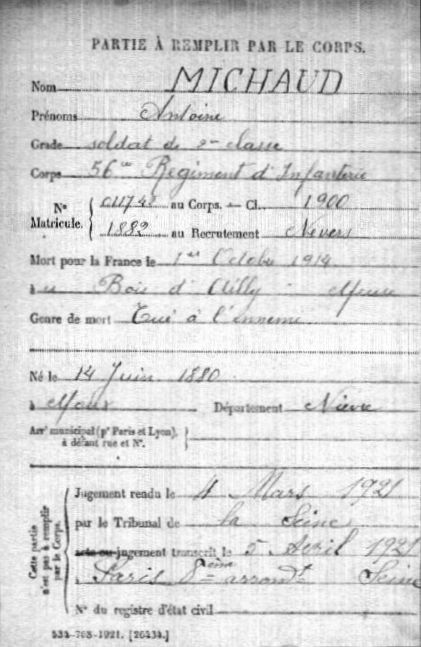 PARTIE À REMPLIR PAR LE CORPS.
Nom MICHAUD
Prénoms Antoine
Grade soldat de 2me classe
Corps 56me Régiment d'Infanterie
Nº Matricule. { 011743 au Corps. — Cl. 1900
1882 au Recrutement Nevers
Mort pour la France le 1er Octobre 1914
à Bois d'Ailly Meuse
Genre de mort Tué à l'ennemi
Né le 14 Juin 1880
à Moux Département Nièvre
Arrt municipal (pr Paris et Lyon), à défaut rue et Nº.
Cette partie n'est pas à remplir par le Corps.
Jugement rendu le 4 Mars 1921
par le Tribunal de la Seine
acte ou jugement transcrit le 5 Avril 1921
à Paris 8ème arrondt Seine
Nº du registre d'état civil
534-708-1921. [26434.]